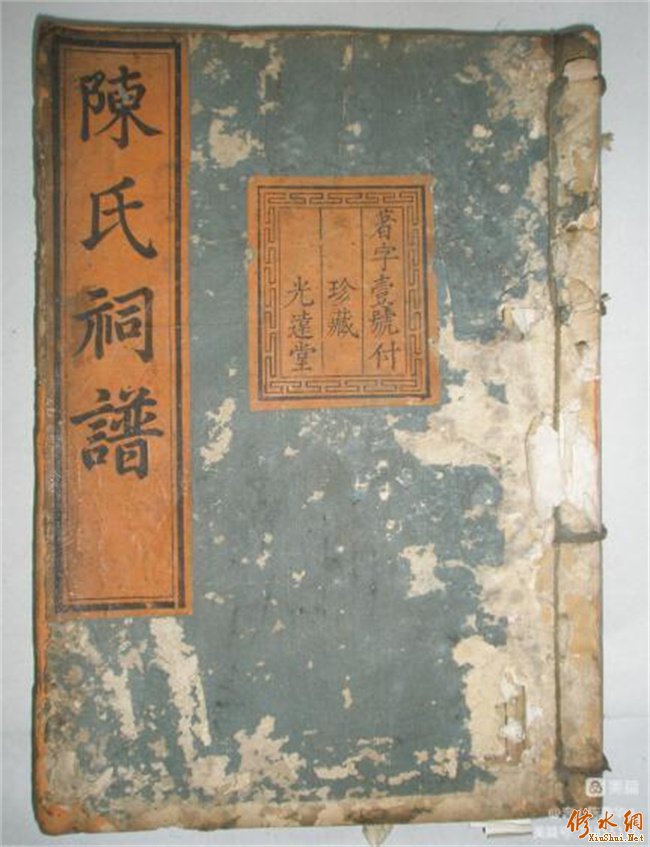 陳氏祠譜
著字壹號付
珍藏
光遠堂
美篇
修水網
XiuShui.Net